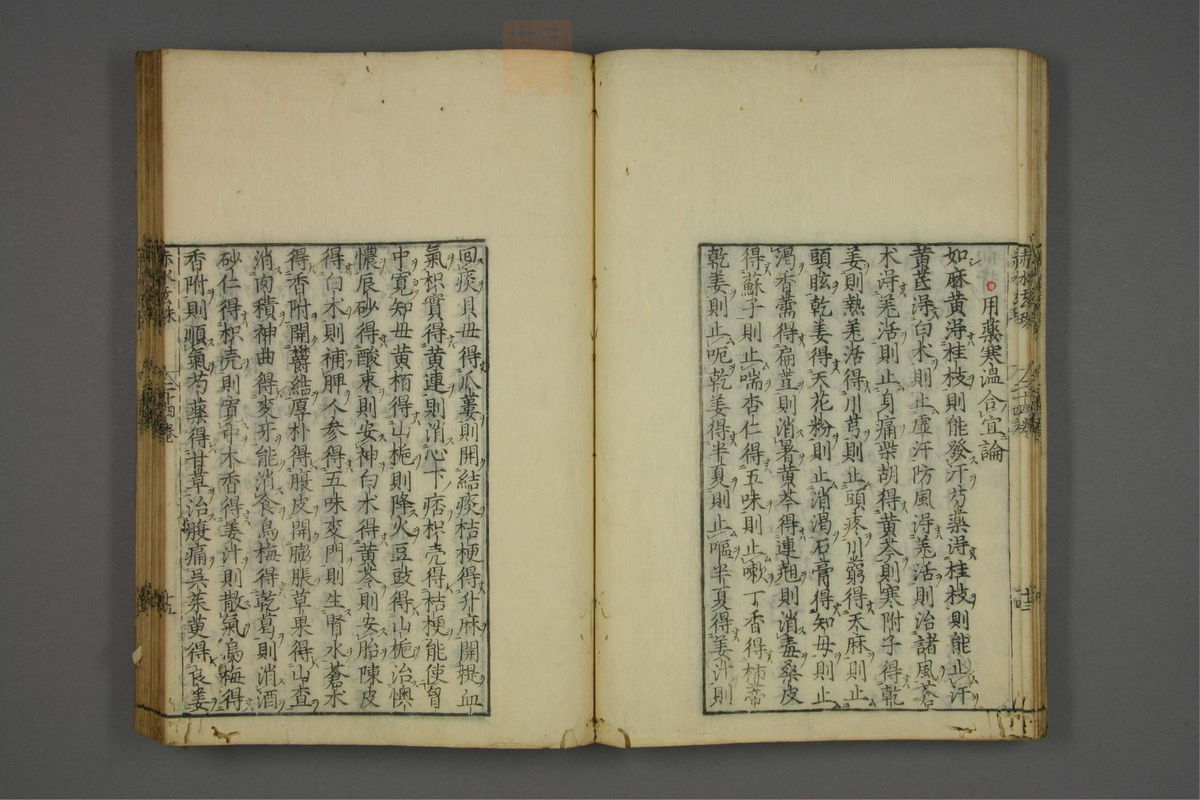 用藥寒温合宜論
如麻黄淂桂枝則能發汗芍藥淂桂枝則能止汗
黄芪淂白术則止虚汗防風淂羌活則治諸風蒼
术淂羌活則止身痛柴胡得黄芩則寒附子得乾
姜則熱羌活得川芎則止頭疼川芎得天麻則止
頭眩乾姜得天花粉則止消渴石膏得知母則止
渴香薷得扁荳則消暑黄芩得連翹則消毒桑皮
得蘇子則止喘杏仁得五味則止嗽丁香得柿蒂
乾姜則止呃乾姜得半夏則止嘔半夏得姜汁則
回痰貝母得瓜蔞則開結痰桔梗得升麻開提血
氣枳實得黄連則消心下痞枳壳得桔梗能使胷
中寛知母黄栢得山梔則降火豆豉得山梔治懊
憹辰砂得酸棗則安神白术得黄芩則安胎陳皮
得白术則補脾人参得五味麥門則生腎水蒼术
得香附開欝結厚朴得腹皮開膨脹草果得山查
消肉積神曲得麥牙能消食烏梅得乾葛則消酒
砂仁得枳壳則寛中木香得姜汁則散氣烏梅得
香附則順氣芍藥得甘草治腹痛吳茱萸得良姜
赤水玄珠
二十四卷